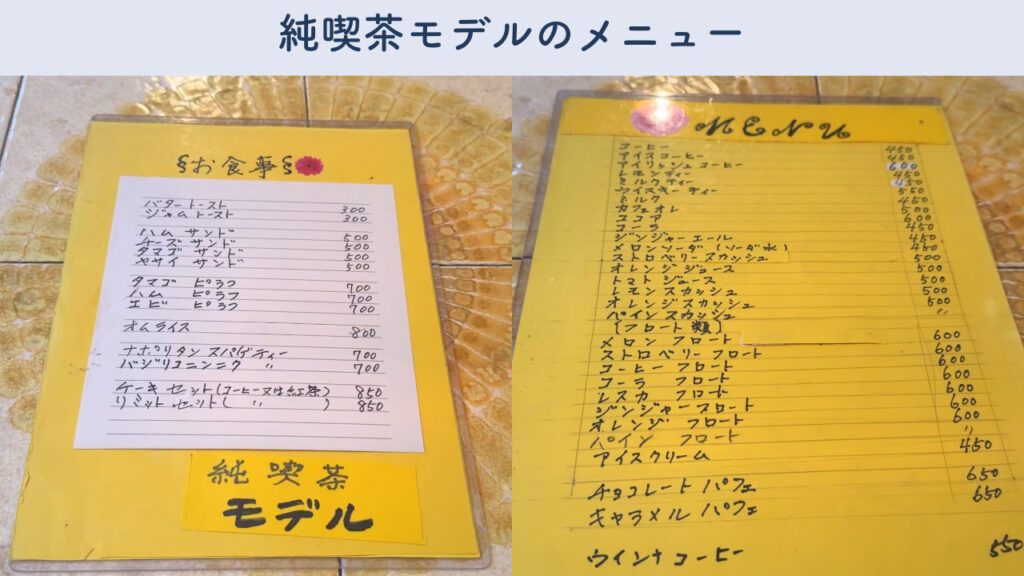 純喫茶モデルのメニュー
§お食事§
バタートースト 300
ジャムトースト 300
ハム サンド 500
チーズ サンド 500
タマゴ サンド 500
ヤサイ サンド 500
タマゴ ピラフ 700
ハム ピラフ 700
エビ ピラフ 700
オムライス 800
ナポリタン スパゲティー 700
バジリコニンニク 〃 700
ケーキセット(コーヒー又は紅茶) 850
リミットセット( 〃 ) 850
純喫茶
モデル
MENU
コーヒー 450
アイスコーヒー 450
アイリッシュコーヒー 600
レモンティー 450
ミルクティー 450
ウイスキーティー 550
ミルク 450
カフェオレ 500
ココア 600
コーラ 450
ジンジャーエール 450
メロンソーダ(ソーダ水) 450
ストロベリースカッシュ 500
オレンジジュース 500
トマトジュース 500
レモンスカッシュ 500
オレンジスカッシュ 500
パインスカッシュ 〃
(フロート類)
メロン フロート 600
ストロベリー フロート 600
コーヒー フロート 600
コーラ フロート 600
レスカ フロート 600
ジンジャーフロート 600
オレンジ フロート 600
パイン フロート 〃
アイスクリーム 450
チョコレート パフェ 650
キャラメル パフェ 650
ウインナコーヒー 550